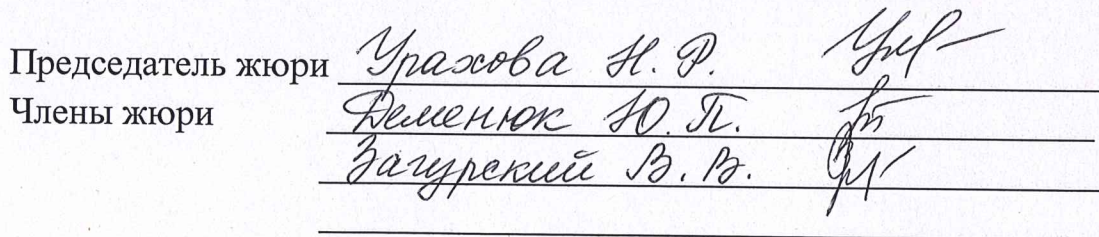 Председатель жюри Урахова Н. Р.
Члены жюри Деменюк Ю. П.
Загурский В. В.